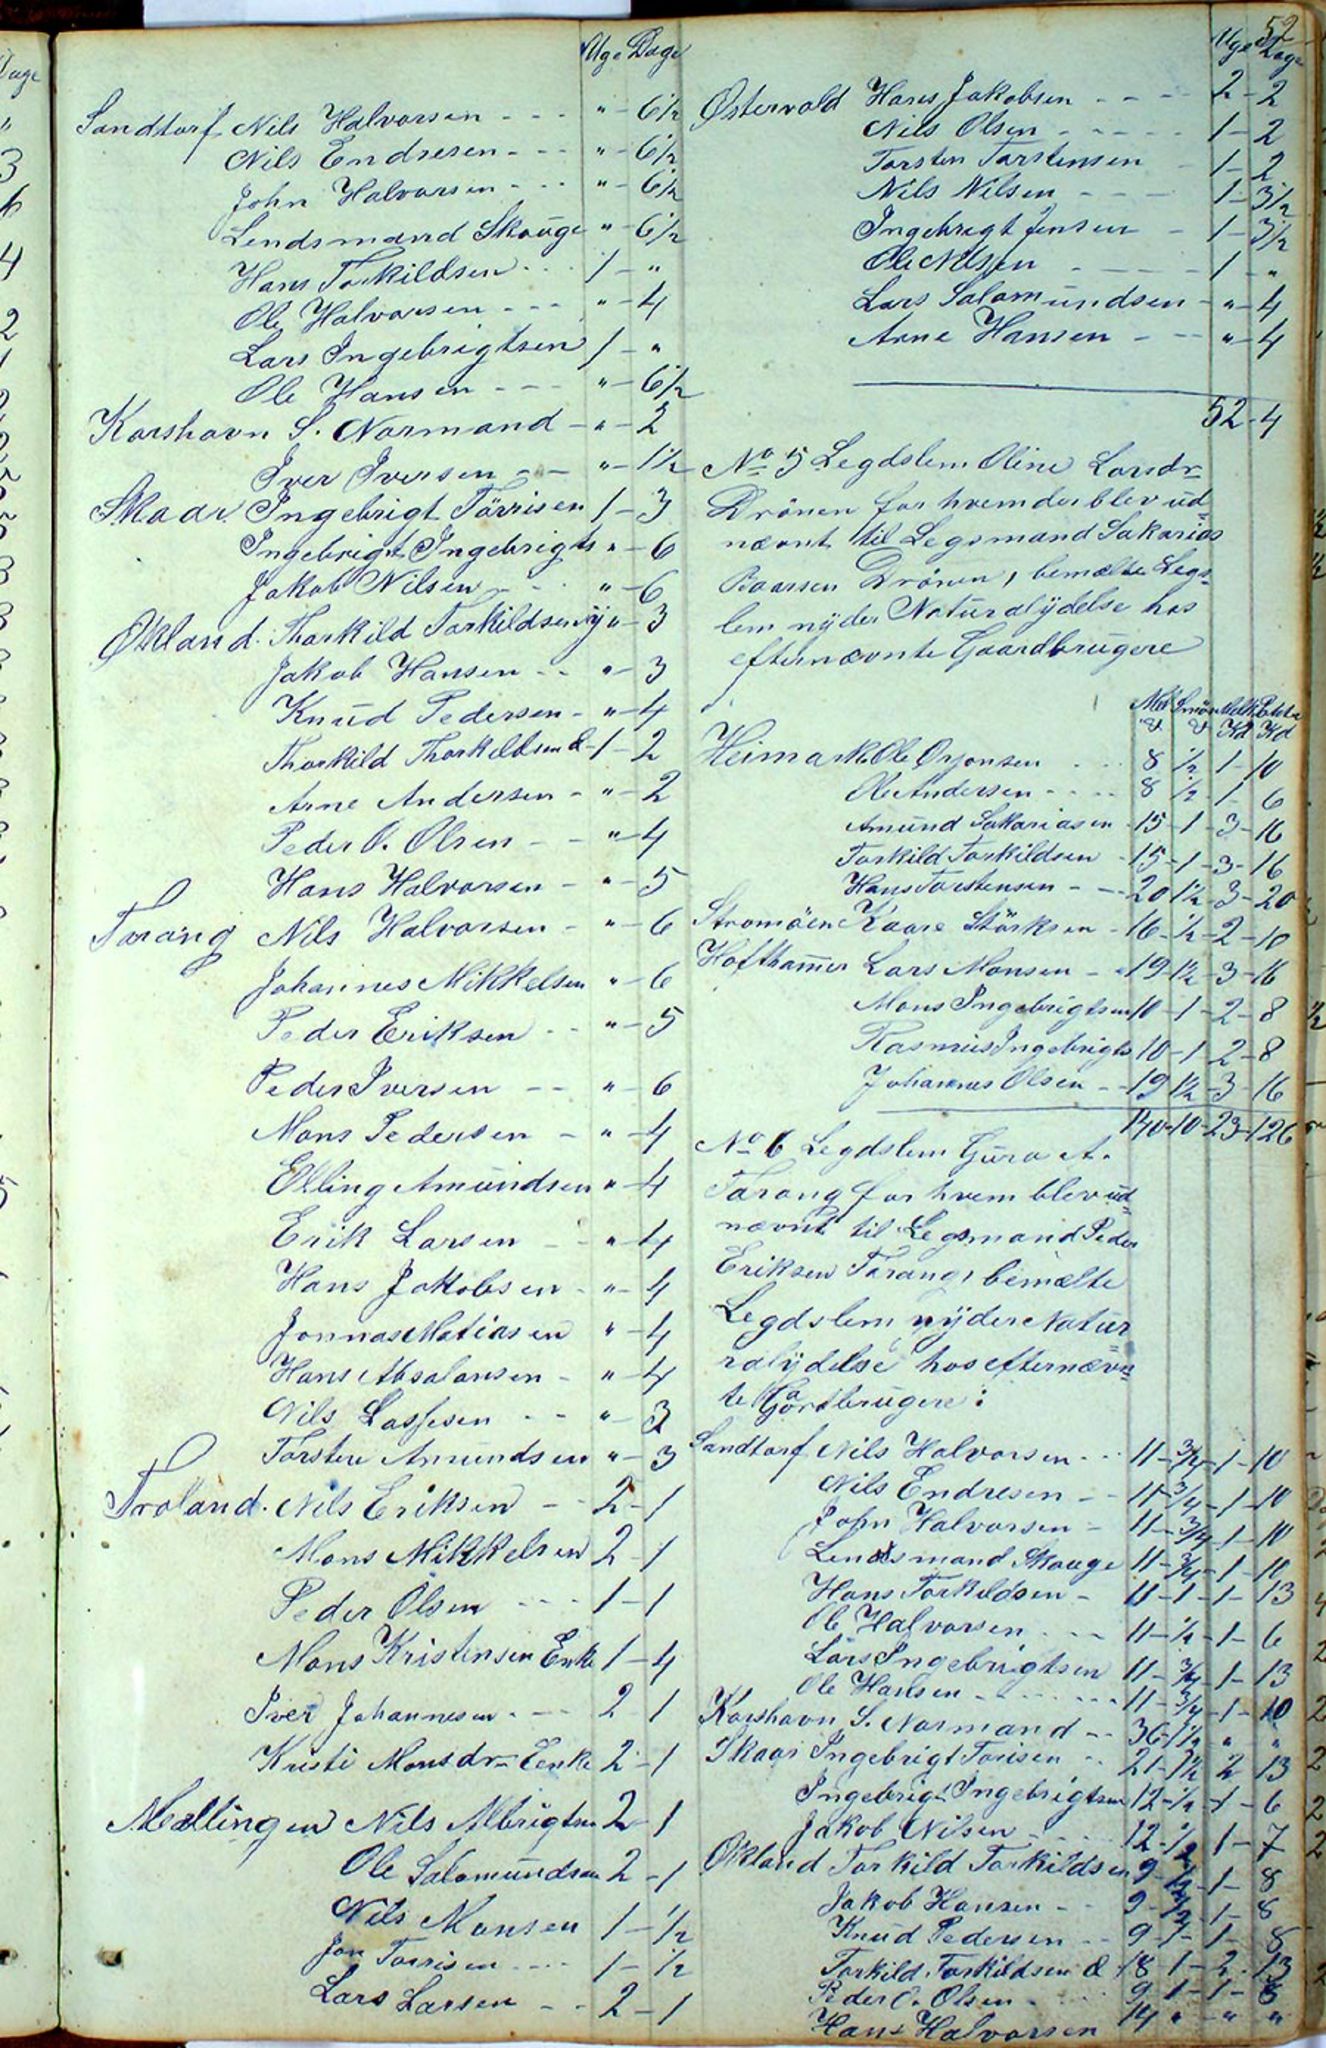 52
Uge Dage
Sandtorf Nils Halvorsen - - - " - 6 1/2
Nils Endresen - - - " - 6 1/2
John Halvorsen - - - " - 6 1/2
Lendsmand Skouge " - 6 1/2
Hans Torkildsen - - - 1 - "
Ole Halvorsen - - - " - 4
Lars Ingebrigtsen 1 - "
Ole Hansen - - - " - 6 1/2
Korshavn S. Normand - " - 2
Iver Iversen - - " - 1 1/2
Skaar Ingebrigt Törrisen 1 - 3
Ingebrigt Ingebrigts " - 6
Jakob Nilsen - - " - 6
Økland. Thorkild Torkildsen y " - 3
Jakob Hansen - - " - 3
Knud Pedersen - " - 4
Thorkild Thorkildsen d - 1 - 2
Arne Andersen - " - 2
Peder O. Olsen - - " - 4
Hans Halvorsen - " - 5
Torang Nils Halvorsen - " - 6
Johannes Mikkelsen " - 6
Peder Eriksen - - " - 5
Peder Iversen - - " - 6
Mons Pedersen - " - 4
Elling Amundsen " - 4
Erik Larsen - - " - 4
Hans Jakobsen - " - 4
Jonnas Matiasen " - 4
Hans Absalonsen - " - 4
Nils Lassesen - - " - 3
Torsten Amundsen " - 3
Troland. Nils Eriksen - - 2 - 1
Mons Mikkelsen 2 - 1
Peder Olsen - - - 1 - 1
Mons Kristensen Enke 1 - 4
Iver Johannesen - - - 2 - 1
Kristi Monsdr - Eenke 2 - 1
Mællingen Nils Albrigtsen 2 - 1
Ole Salomundsen 2 - 1
Nils Monsen 1 - 1/2
Jon Torrisen - - - 1 - 1/2
Lars Larsen - - 2 - 1
Uge Dage
Østervold Hans Jakobsen - - - 2 - 2
Nils Olsen - - - - 1 - 2
Torsten Torstensen - 1 - 2
Nils Nilsen - - - - 1 - 3 1/2
Ingebrigt Jensen - 1 - 3 1/2
Ole Nilsen - - - - 1 - "
Lars Salomundsen - " - 4
Arne Hansen - - - " - 4
52 - 4
No 5 Legdslem Oline Larsdr
Drönen for hvem der blev ud-
nævnt til Legsmand Sakarias
Baarsen Drönen, bemælte Legs-
lem nyder Naturalydelse hos
efternævnte Gaardbrugere
Mel Smör Melk Poteter
Kd Kd
Heimark Ole Orjonsen - - - 8 1/2 - 1 - 10
Ole Andersen - - - - 8 1/2 - 1 - 6
Amund Sakariasen - 15 - 1 - 3 - 16
Torkild Torkildsen - 15 - 1 - 3 - 16
Hans Torstensen - - - 20 1 1/2 - 3 - 20
Stromöen Kaare Störksen - 16 - 1/2 - 2 - 10
Hofthamer Lars Monsen - - 19 - 1 1/2 - 3 - 16
Mons Ingebrigtsen 10 - 1 - 2 - 8
Rasmus Ingebrigts 10 - 1 - 2 - 8
Johannes Olsen - - 19 1 1/2 - 3 - 16
140 - 10 - 23 - 126
No 6 Legdslem Guro A.
Torang for hvem blev ud-
nævnt til Legsmand Peder
Eriksen Torang, bemælte
Legdslem nyder Natur-
ralydelse hos efternævn-
te Gardbrugere:
Sandtorf Nils Halvorsen - - - 11 - 3/4 - 1 - 10
Nils Endresen - - 11 - 3/4 - 1 - 10
John Halvorsen - 11 - 3/4 - 1 - 10
Lendsmand Skouge 11 - 3/4 - 1 - 10
Hans Torkildsen - 11 - 1 - 1 - 13
Ole Halvorsen - - - 11 - 1/2 - 1 - 6
Lars Ingebrigtsen 11 - 3/4 - 1 - 13
Ole Hansen - - - - - 11 - 3/4 - 1 - 10
Korshavn S. Normand - - 36 - 1 1/2 " "
Skaar Ingebrigt Torisen - - 21 - 1 1/2 2 - 13
Ingebrigt Ingebrigtsen 12 - 1/2 - 1 - 6
Jakob Nilsen - - - 12 - 1/2 1 - 7
Økland Torkild Torkildsen 9 - 1/2 - 1 - 8
Jakob Hansen - - 9 - 1/2 - 1 - 8
Knud Pedersen - - 9 - 1 - 1 - 8
Torkild Torkildsen d - 18 1 - 2 - 13
Peder O. Olsen - - - 9 1 - 1 - 8
Hans Halvorsen 14 " - " "